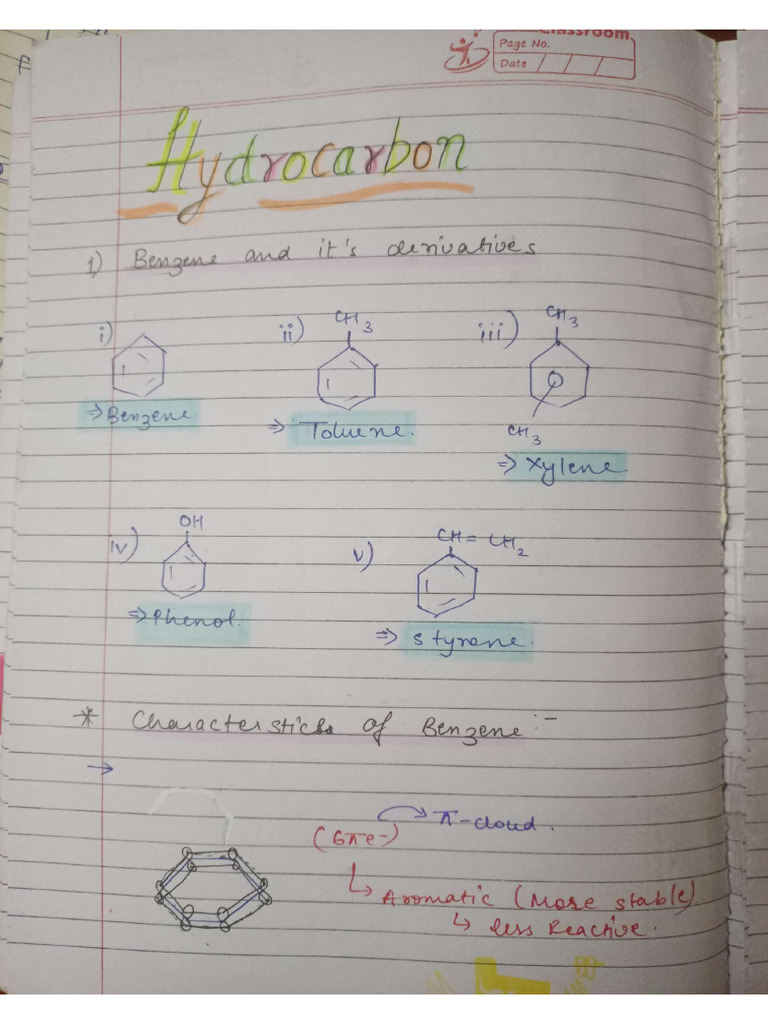 Classroom
Page No.
Date
Hydrocarbon
1) Benzene and it's derivatives
i) ii) CH3 iii) CH3
⇒ Benzene. ⇒ Toluene. CH3
⇒ Xylene
iv) OH v) CH = CH2
⇒ Phenol. ⇒ Styrene.
* Characterstics of Benzene :-
→
(6πe-) → π-cloud.
↳ Aromatic (More stable)
↳ less Reactive.